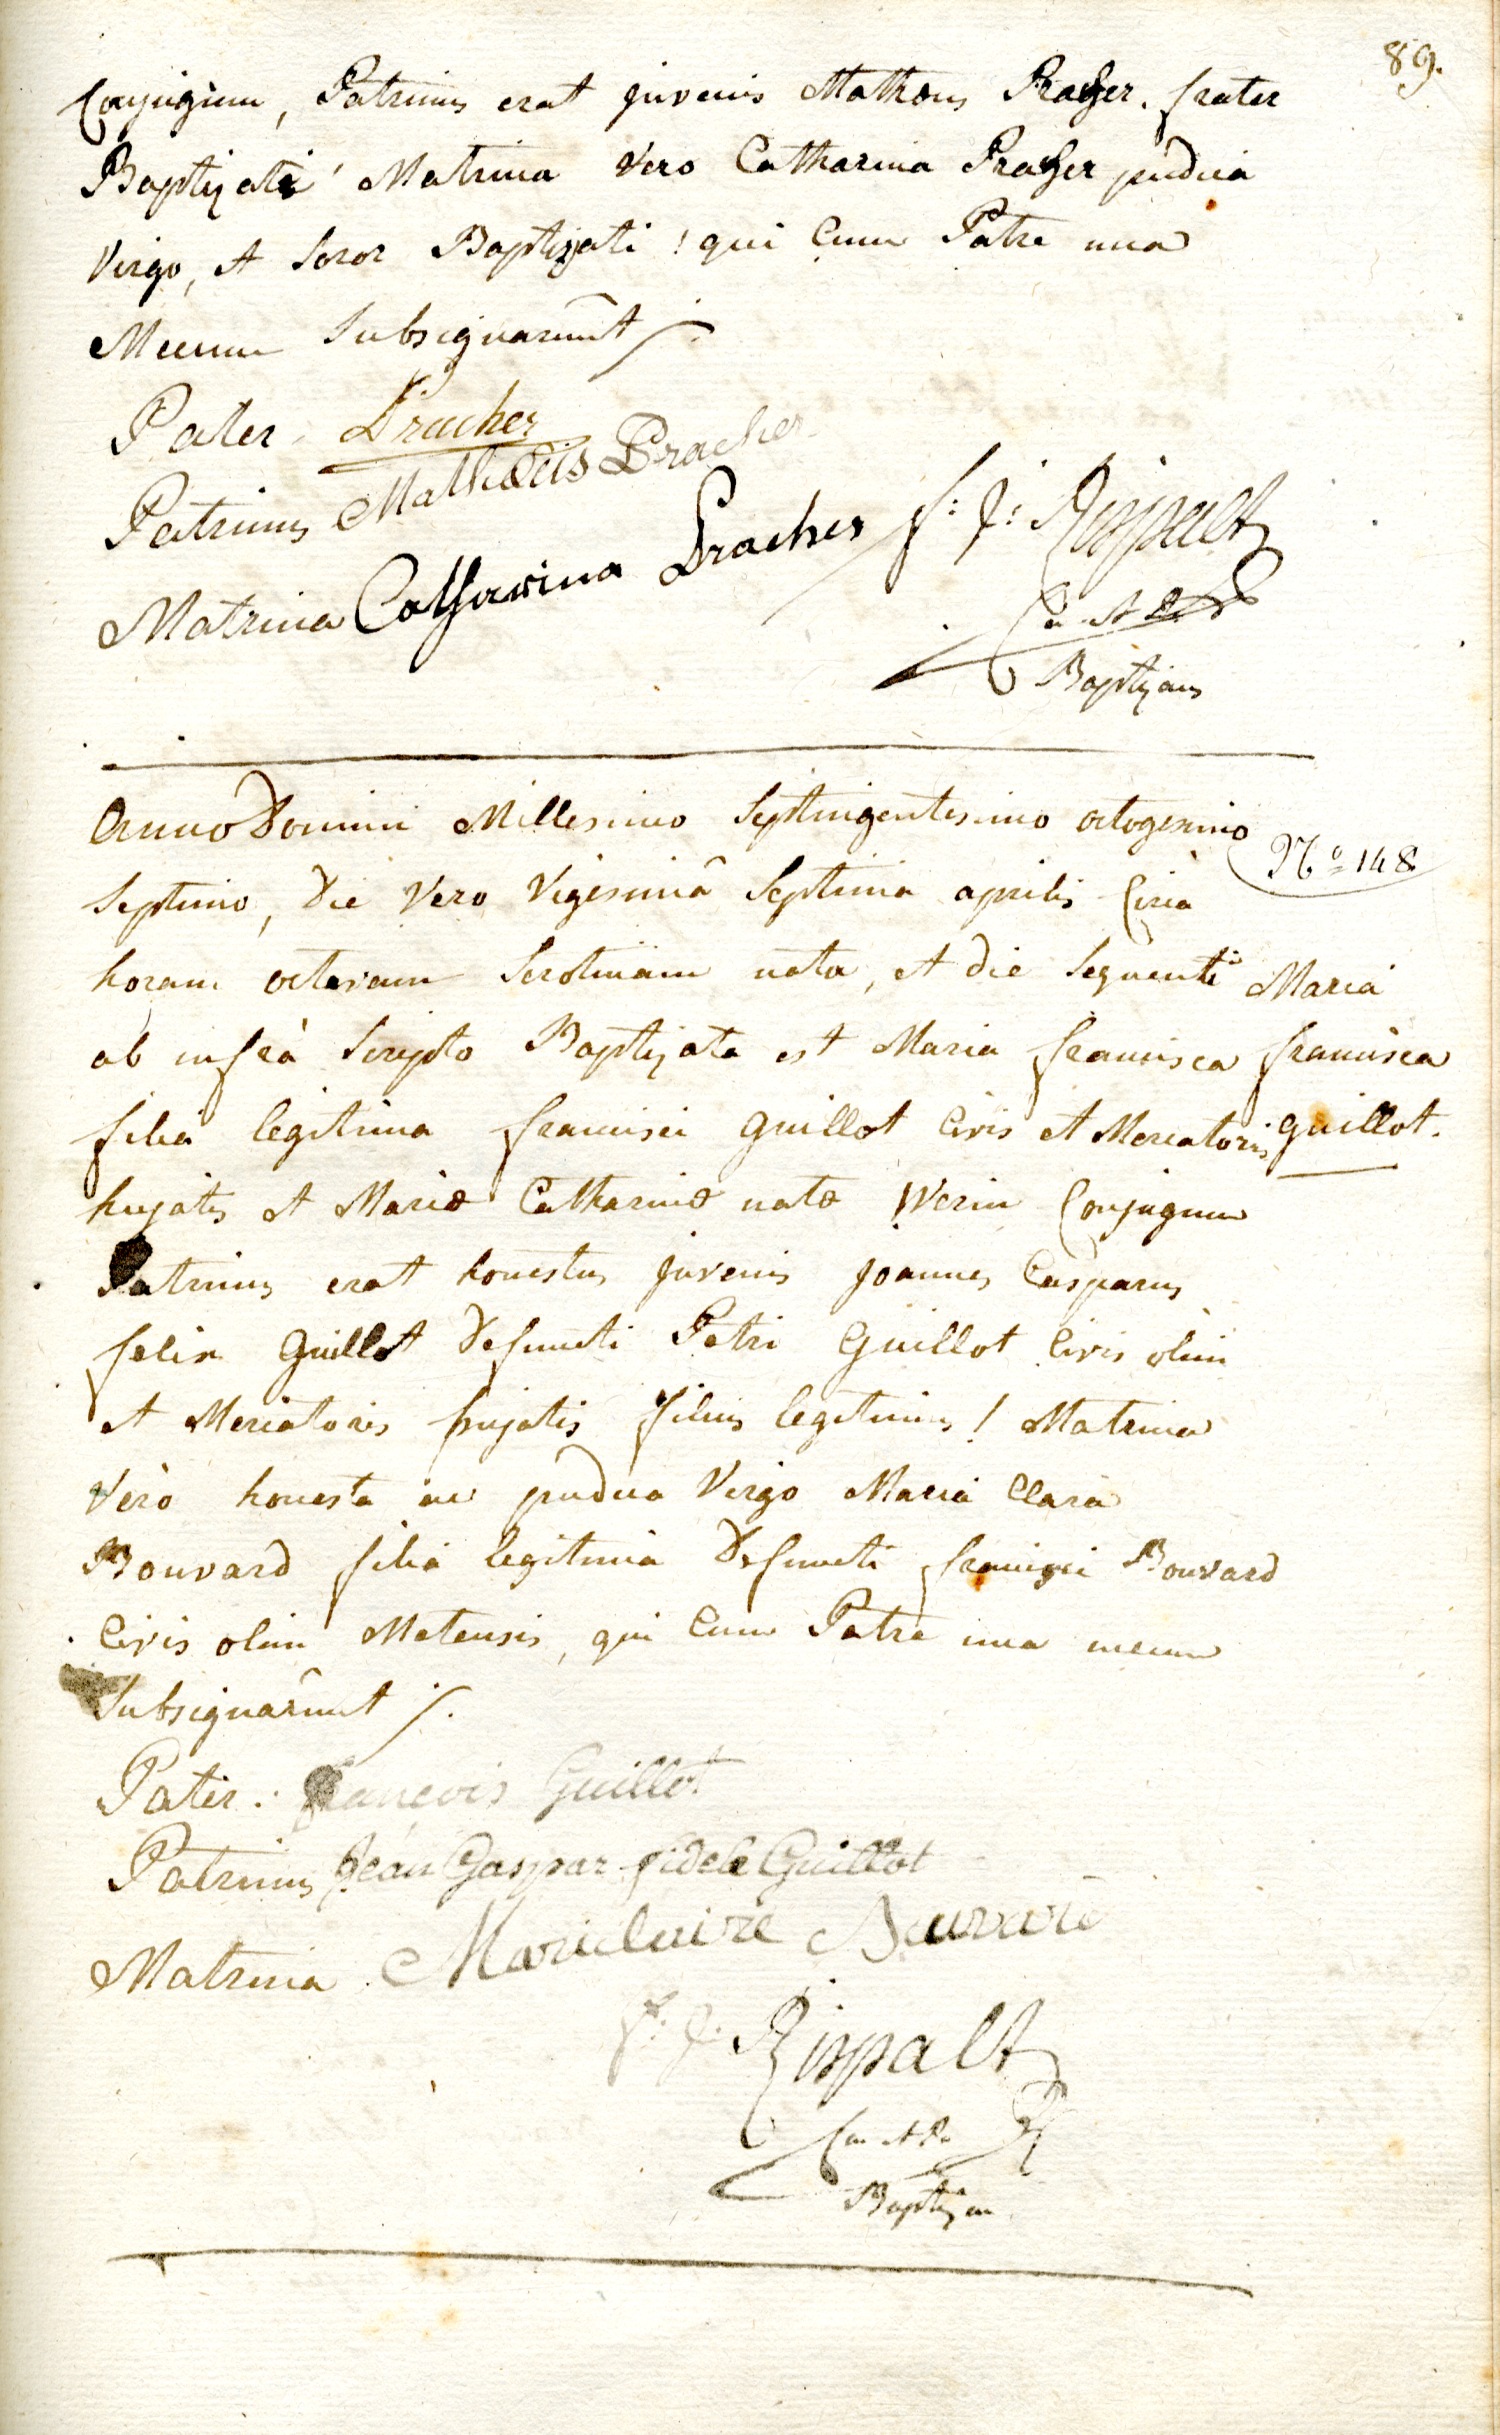 89.
Conjugum, Patrinus erat juvenis Mathæus Pracher. frater
Baptizati! Matrina Vero Catharina Pracher pudica
Virgo, et Soror Baptizati! qui Cum Patre una
Mecum Subsignarunt ./.
Pater Pracher
Patrinus Mathæus Pracher
Matrina Catharina Pracher f: j: Rispalt
Can. et
Baptizans
Anno Domini Millesimo Septingentesimo octogesimo
Nº 148
Septimo, Die Vero Vigesimâ Septima aprilis Circà
horam octavam Serotinam nata, et die Sequenti
ab infrà Scripto Baptizata est Maria francisca
Maria
francisca
guillot.
filia legitima francisci guillot Civis et Mercatoris
hujatis et Mariæ Catharinæ natæ Werin Conjugum
Patrinus erat honestus juvenis joannes Casparus
felix guillot Defuncti Petri Guillot Civis olim
et Mercatoris hujatis filius legitimus! Matrina
Verò honesta ac pudica Virgo Maria Clara
Bouvard filia legitima Defuncti francisci Bouvard
Civis olim Metensis, qui Cum Patre una mecum
Subsignarunt ./.
Pater: francois Guillot
Patrinus Jean Gaspar fidele Guillot
Matrina Mariclaire Bauvard
f: j: Rispalt
Can et
Baptizans